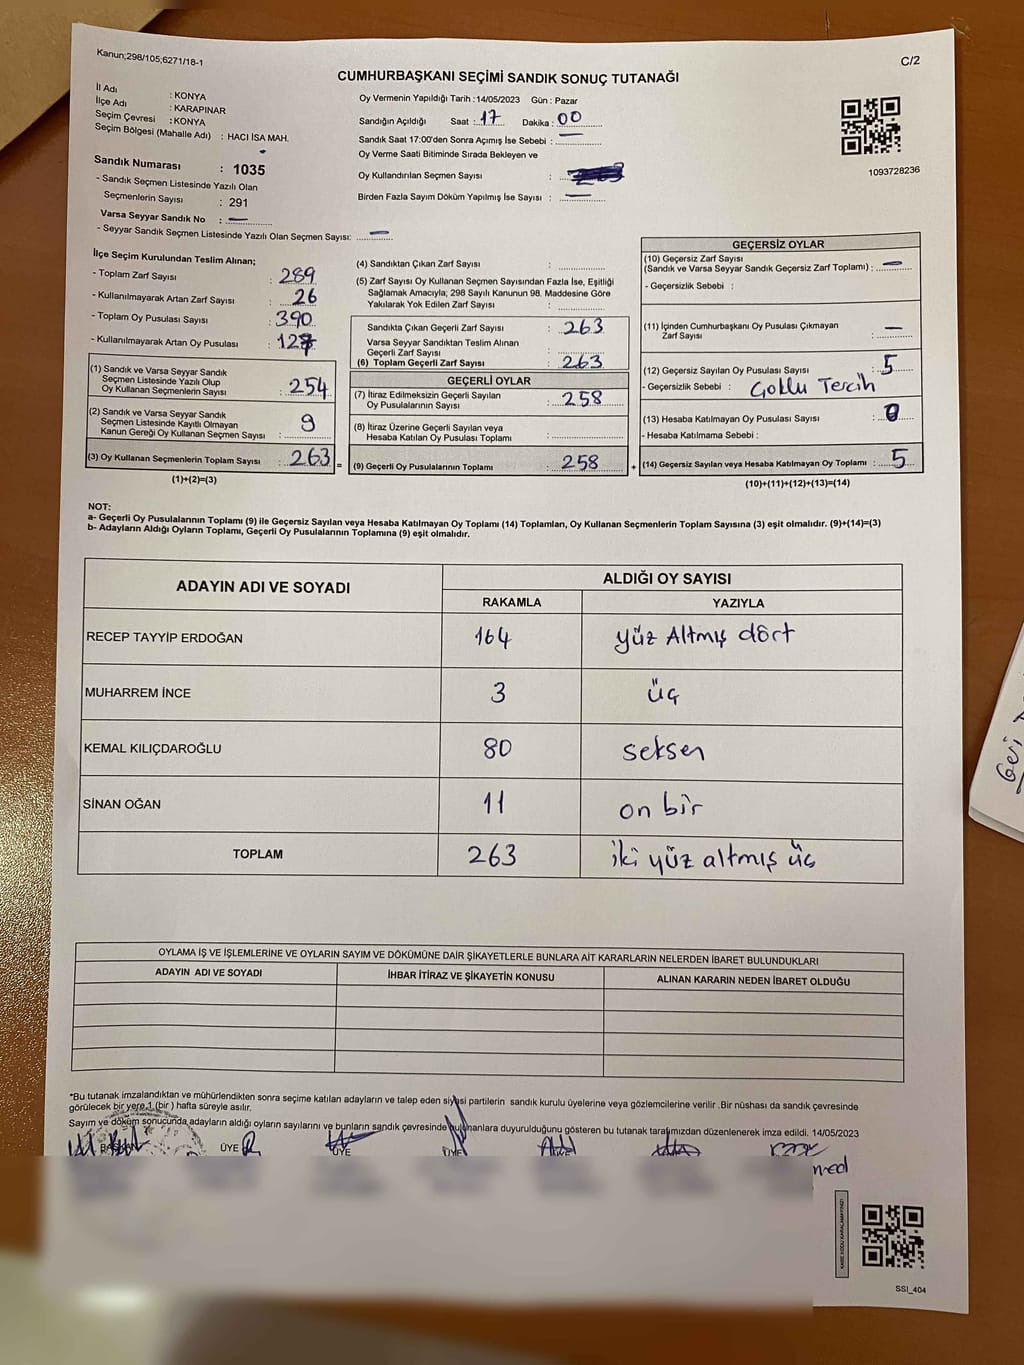 Kanun;298/105;6271/18-1
C/2
CUMHURBAŞKANI SEÇİMİ SANDIK SONUÇ TUTANAĞI
İl Adı : KONYA
İlçe Adı : KARAPINAR
Seçim Çevresi : KONYA
Seçim Bölgesi (Mahalle Adı) : HACI İSA MAH.
Sandık Numarası : 1035
- Sandık Seçmen Listesinde Yazılı Olan
Seçmenlerin Sayısı : 291
Varsa Seyyar Sandık No : —
- Seyyar Sandık Seçmen Listesinde Yazılı Olan Seçmen Sayısı: —
Oy Vermenin Yapıldığı Tarih :14/05/2023 Gün : Pazar
Sandığın Açıldığı Saat : 17 Dakika : 00
Sandık Saat 17:00'den Sonra Açımış İse Sebebi : —
Oy Verme Saati Bitiminde Sırada Bekleyen ve
Oy Kullandırılan Seçmen Sayısı :
Birden Fazla Sayım Döküm Yapılmış İse Sayısı : —
1093728236
İlçe Seçim Kurulundan Teslim Alınan;
- Toplam Zarf Sayısı : 289
- Kullanılmayarak Artan Zarf Sayısı : 26
- Toplam Oy Pusulası Sayısı : 390
- Kullanılmayarak Artan Oy Pusulası : 127
(1) Sandık ve Varsa Seyyar Sandık
Seçmen Listesinde Yazılı Olup
Oy Kullanan Seçmenlerin Sayısı : 254
(2) Sandık ve Varsa Seyyar Sandık
Seçmen Listesinde Kayıtlı Olmayan
Kanun Gereği Oy Kullanan Seçmen Sayısı : 9
(3) Oy Kullanan Seçmenlerin Toplam Sayısı : 263 =
(1)+(2)=(3)
(4) Sandıktan Çıkan Zarf Sayısı :
(5) Zarf Sayısı Oy Kullanan Seçmen Sayısından Fazla İse, Eşitliği
Sağlamak Amacıyla; 298 Sayılı Kanunun 98. Maddesine Göre
Yakılarak Yok Edilen Zarf Sayısı :
Sandıkta Çıkan Geçerli Zarf Sayısı : 263
Varsa Seyyar Sandıktan Teslim Alınan
Geçerli Zarf Sayısı :
(6) Toplam Geçerli Zarf Sayısı : 263
GEÇERLİ OYLAR
(7) İtiraz Edilmeksizin Geçerli Sayılan
Oy Pusulalarının Sayısı : 258
(8) İtiraz Üzerine Geçerli Sayılan veya
Hesaba Katılan Oy Pusulası Toplamı :
(9) Geçerli Oy Pusulalarının Toplamı : 258 +
GEÇERSİZ OYLAR
(10) Geçersiz Zarf Sayısı
(Sandık ve Varsa Seyyar Sandık Geçersiz Zarf Toplamı) : —
- Geçersizlik Sebebi :
(11) İçinden Cumhurbaşkanı Oy Pusulası Çıkmayan
Zarf Sayısı : —
(12) Geçersiz Sayılan Oy Pusulası Sayısı : 5
- Geçersizlik Sebebi : Çoklu Tercih
(13) Hesaba Katılmayan Oy Pusulası Sayısı : 0
- Hesaba Katılmama Sebebi :
(14) Geçersiz Sayılan veya Hesaba Katılmayan Oy Toplamı : 5
(10)+(11)+(12)+(13)=(14)
NOT:
a- Geçerli Oy Pusulalarının Toplamı (9) ile Geçersiz Sayılan veya Hesaba Katılmayan Oy Toplamı (14) Toplamları, Oy Kullanan Seçmenlerin Toplam Sayısına (3) eşit olmalıdır. (9)+(14)=(3)
b- Adayların Aldığı Oyların Toplamı, Geçerli Oy Pusulalarının Toplamına (9) eşit olmalıdır.
ADAYIN ADI VE SOYADI
ALDIĞI OY SAYISI
RAKAMLA YAZIYLA
RECEP TAYYİP ERDOĞAN 164 yüz Altmış dört
MUHARREM İNCE 3 üç
KEMAL KILIÇDAROĞLU 80 seksen
SİNAN OĞAN 11 on bir
TOPLAM 263 iki yüz altmış üç
OYLAMA İŞ VE İŞLEMLERİNE VE OYLARIN SAYIM VE DÖKÜMÜNE DAİR ŞİKAYETLERLE BUNLARA AİT KARARLARIN NELERDEN İBARET BULUNDUKLARI
ADAYIN ADI VE SOYADI İHBAR İTİRAZ VE ŞİKAYETİN KONUSU ALINAN KARARIN NEDEN İBARET OLDUĞU
*Bu tutanak imzalandıktan ve mühürlendikten sonra seçime katılan adayların ve talep eden siyasi partilerin sandık kurulu üyelerine veya gözlemcilerine verilir .Bir nüshası da sandık çevresinde
görülecek bir yere 1 (bir) hafta süreyle asılır.
Sayım ve döküm sonucunda adayların aldığı oyların sayılarını ve bunların sandık çevresinde bulunanlara duyurulduğunu gösteren bu tutanak tarafımızdan düzenlenerek imza edildi. 14/05/2023
BAŞKAN ÜYE ÜYE ÜYE
SSI_404